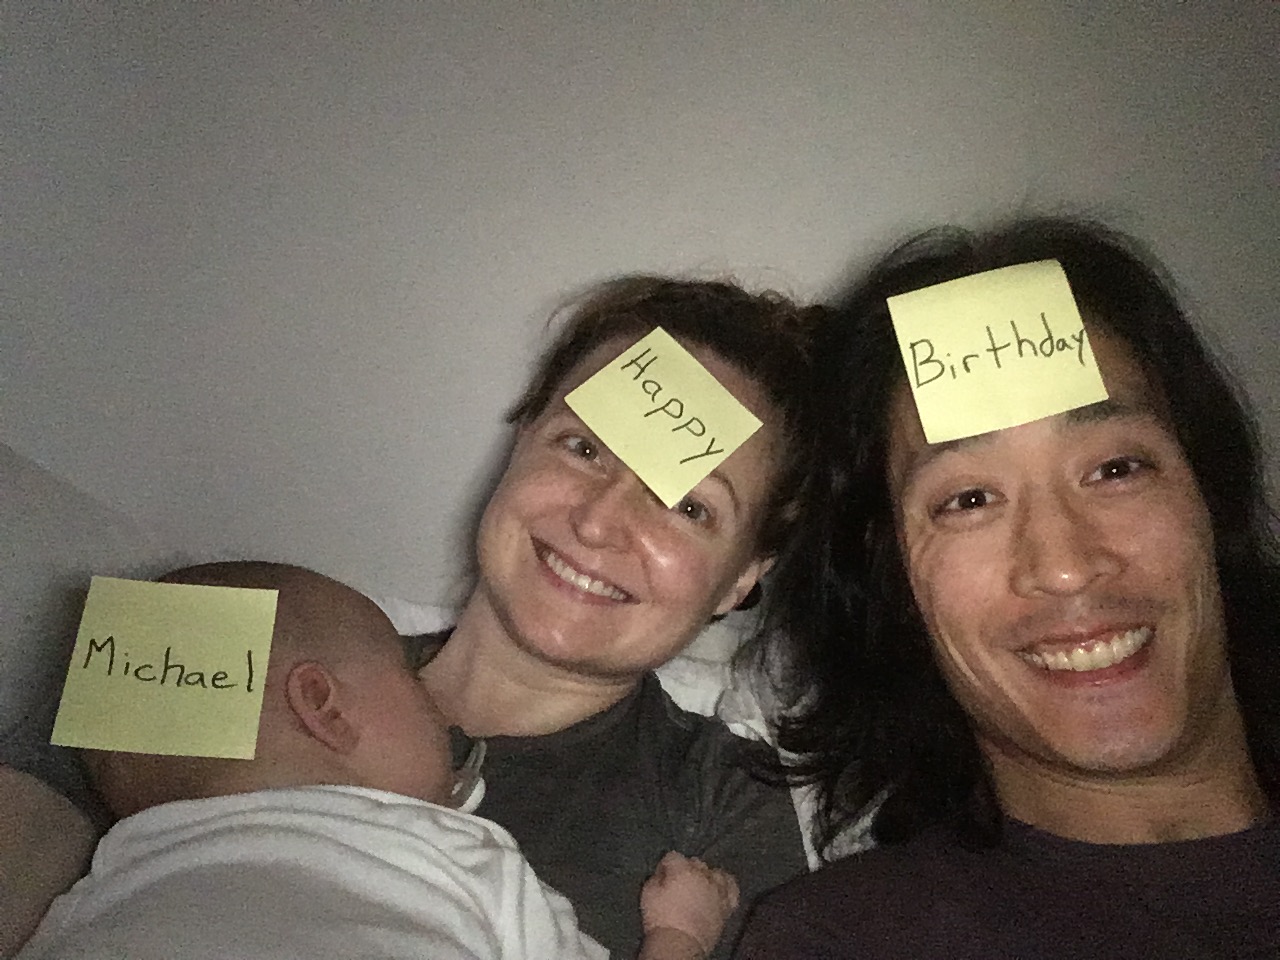 Happy
Birthday
Michael